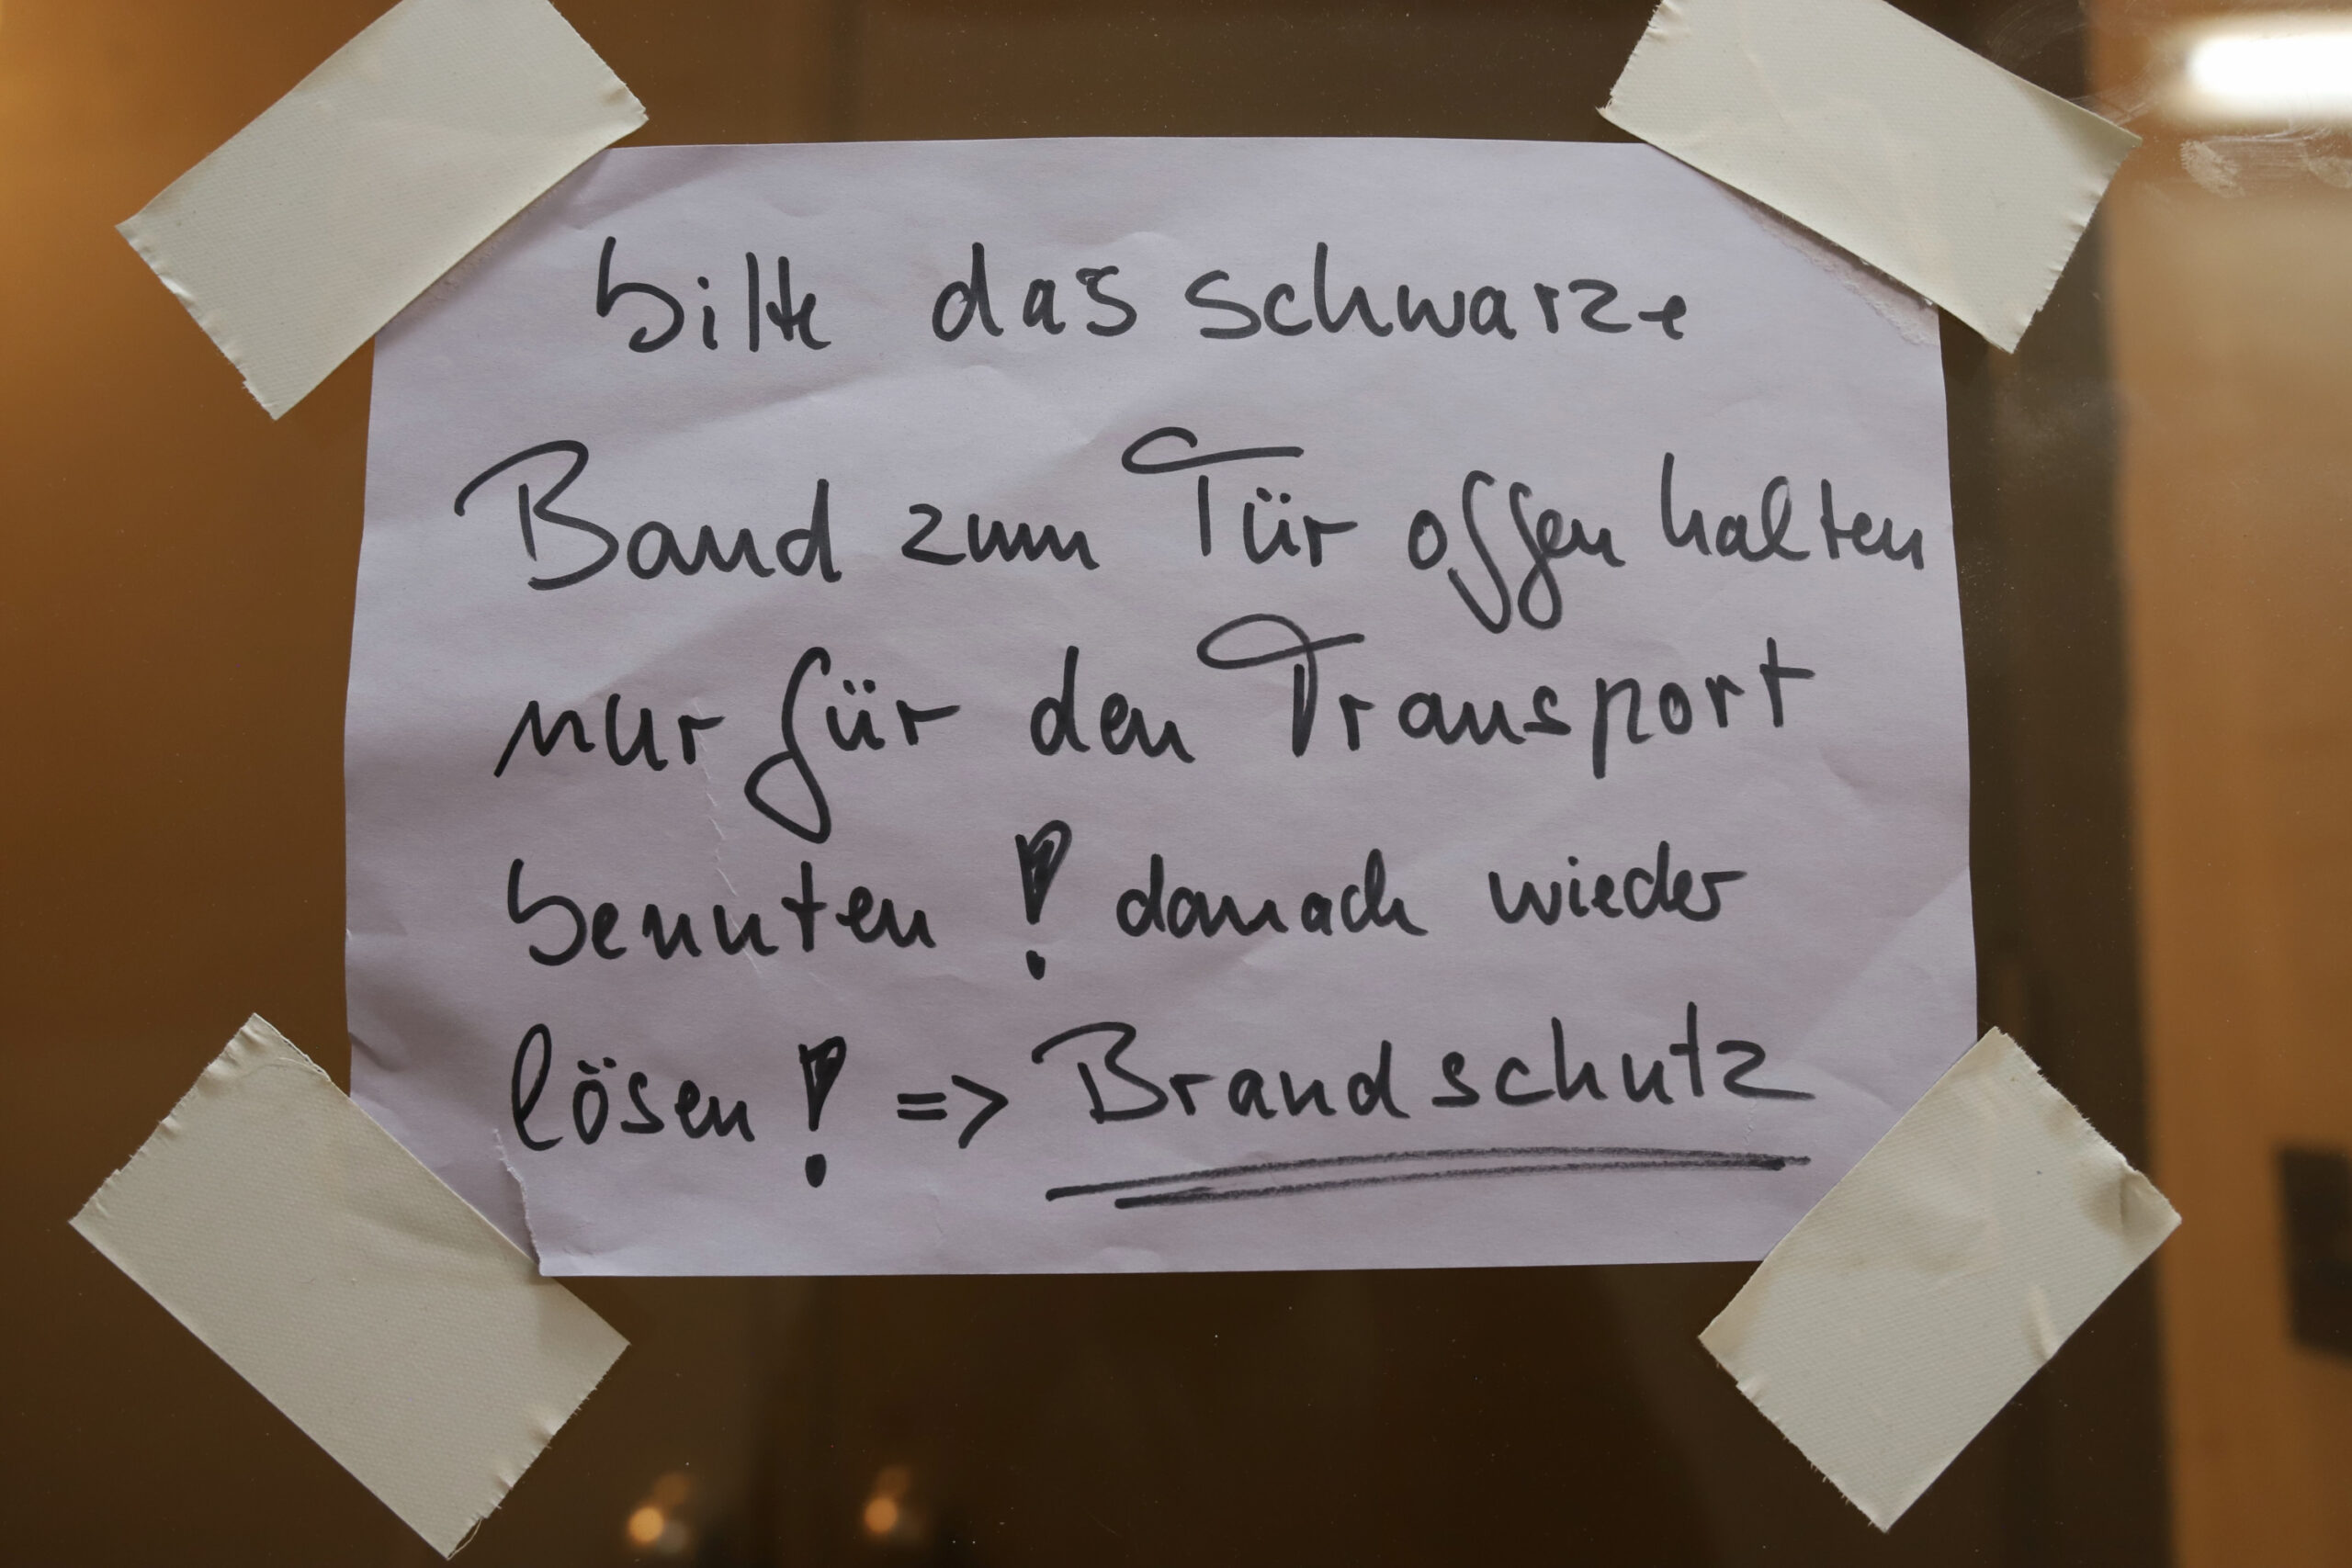 bitte das schwarze
Band zum Tür offen halten
nur für den Transport
bennten ! danach wieder
lösen ! => Brandschutz